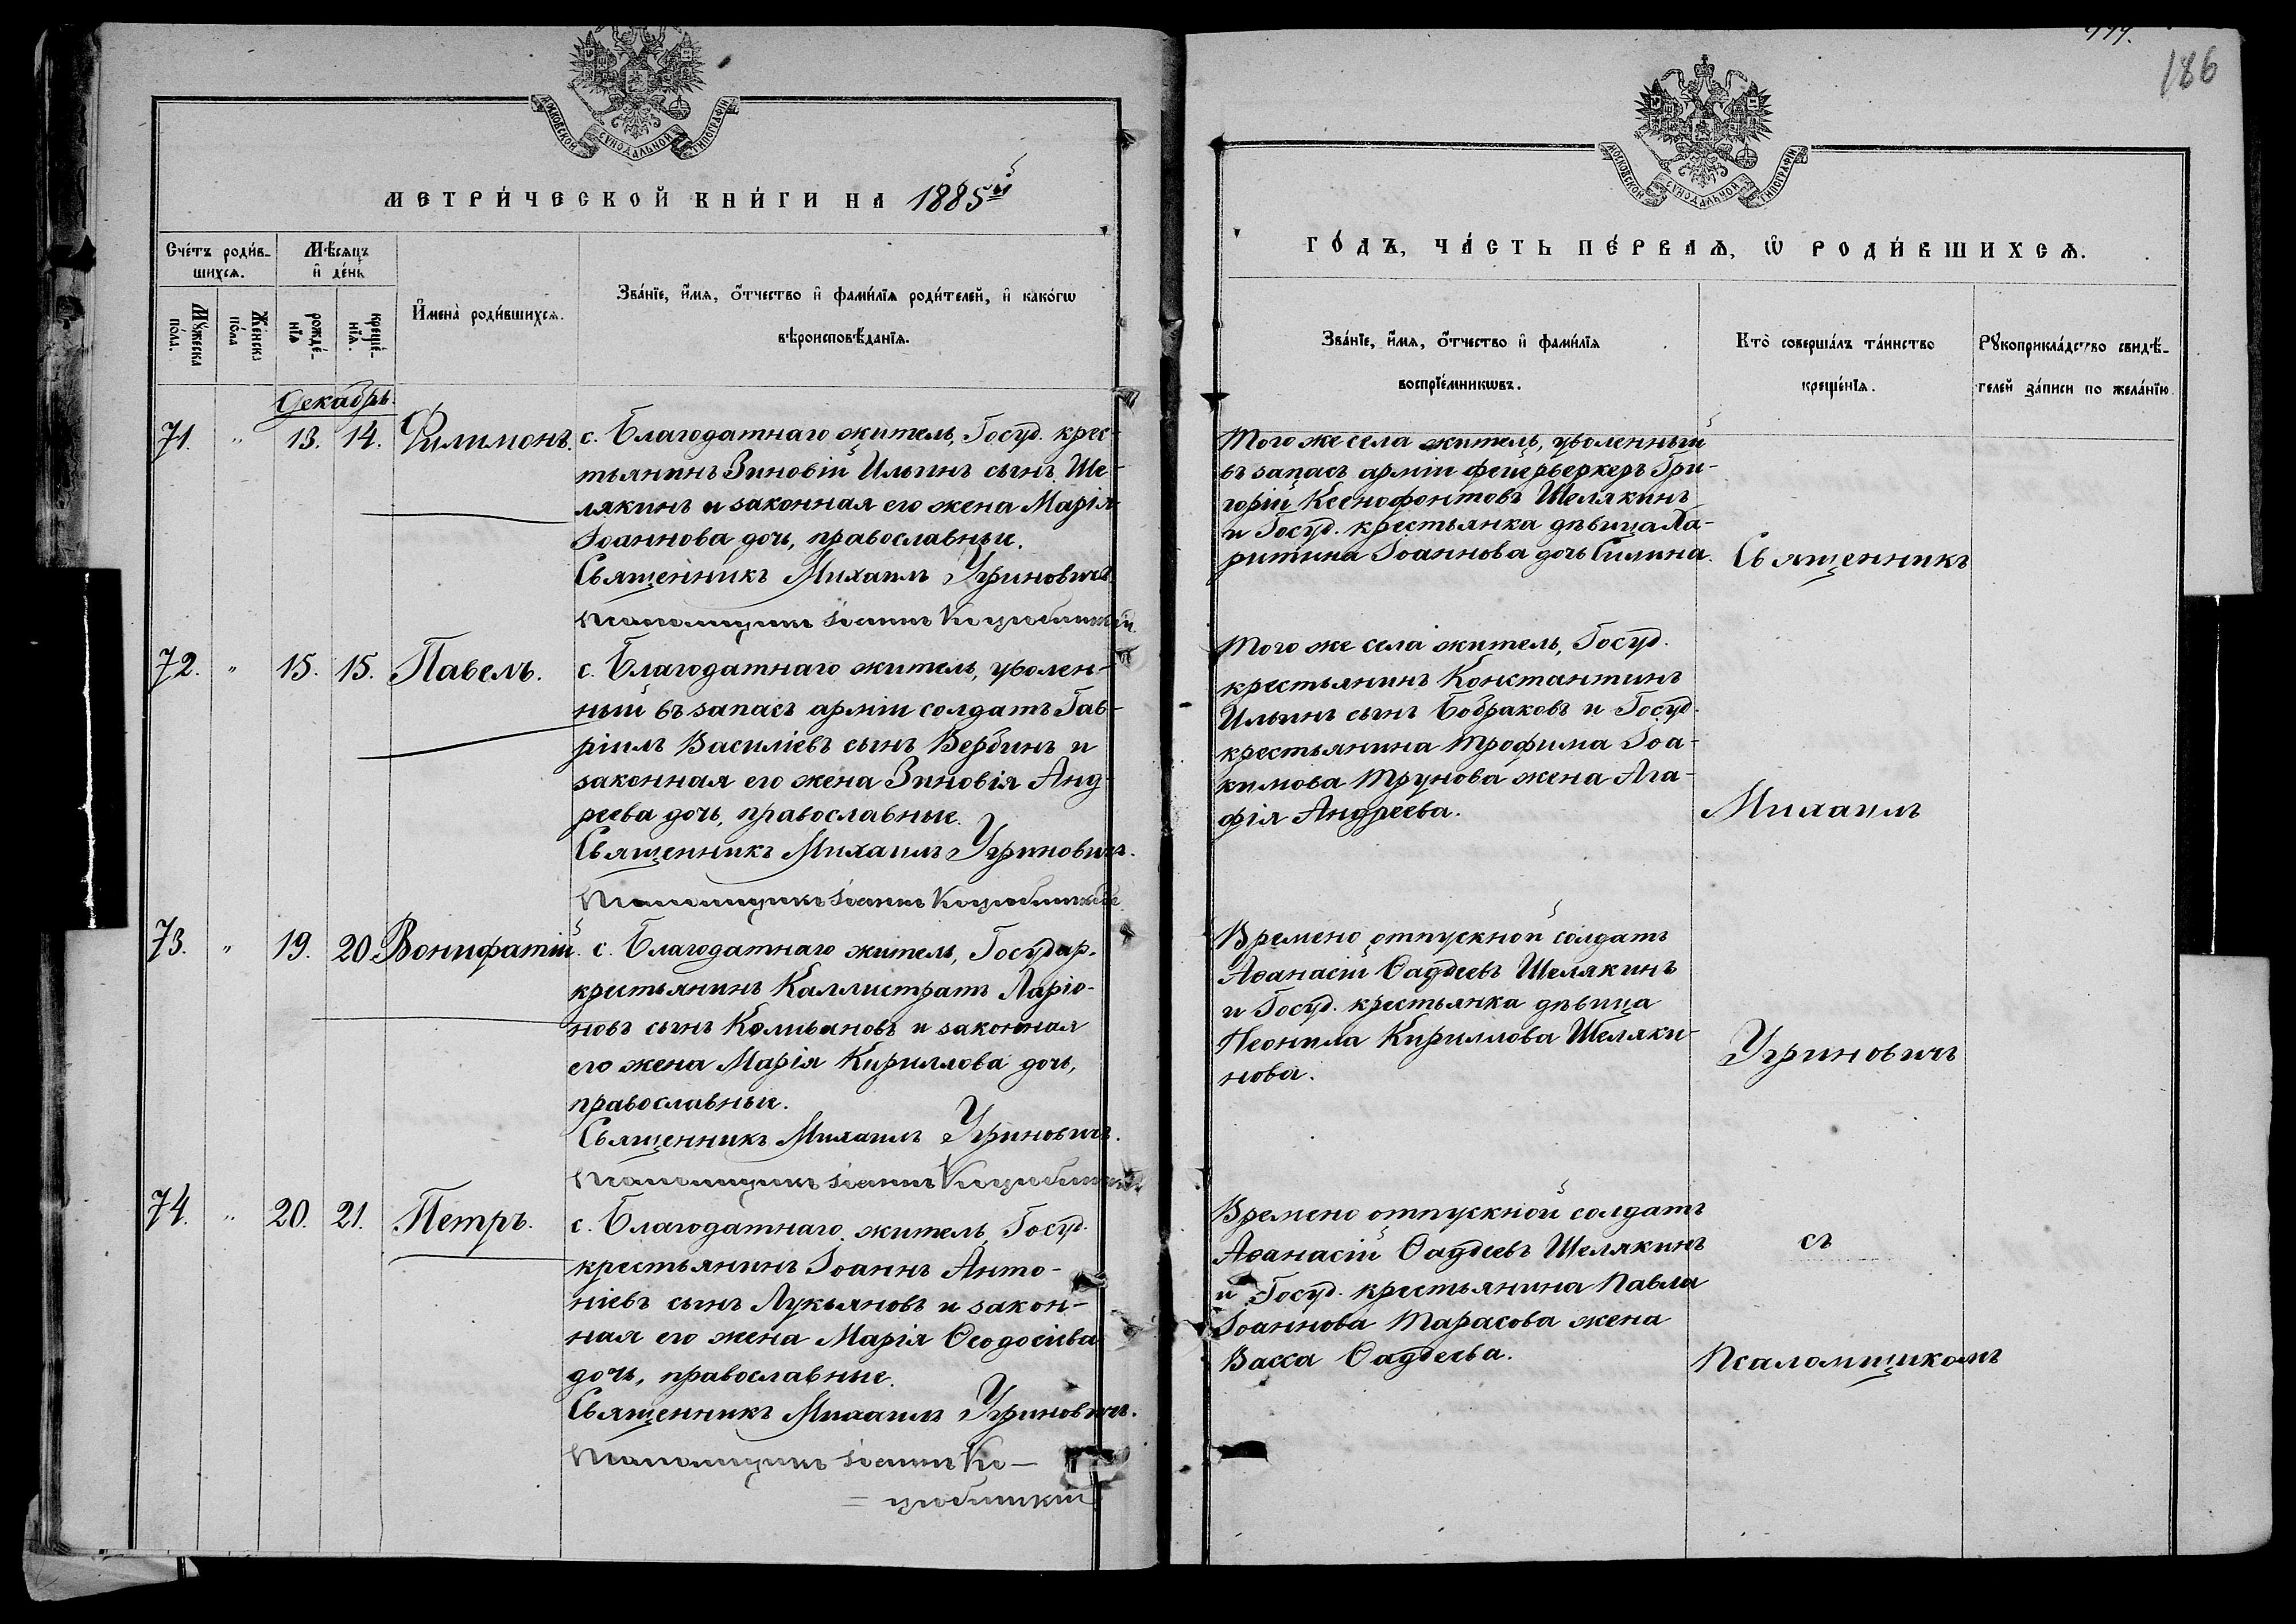 МОСКОВСКОЙ СѴНОДАЛЬНОЙ ТИПОГРАФІИ
МЕТРИ́ЧЕСКОЙ КНИ́ГИ НА 1885й
Сче́тъ роди́в-
шихсѧ.
Мѣ́сѧцъ
и҆ де́нь
Мꙋ́жеска
по́ла.
Же́нска
по́ла
рожде́-
нїѧ
креще́-
нїѧ.
И҆мена̀ роди́вшихсѧ.
Зва́нїе, и҆́мѧ, ѻ҆́тчество и҆ фами́лїѧ роди́телей, и҆ како́гѡ
вѣроисповѣ́данїѧ.
Декабрь.
71. " 13. 14. Филимонъ.
с. Благодатнаго житель, Госуд. крес-
тьянинъ Зиновій Ильинъ сынъ Ше-
лякинъ и законная его жена Марія
Іоаннова дочь, православные.
Священникъ Михаилъ Угриновичъ.
Псаломщикъ Іоаннъ Коцюблицкій.
72. " 15. 15. Павелъ.
с. Благодатнаго житель, уволен-
ный въ запасъ арміи солдатъ Гав-
ріилъ Василіевъ сынъ Вербинъ и
законная его жена Зиновія Анд-
реева дочь, православные.
Священникъ Михаилъ Угриновичъ.
Псаломщикъ Іоаннъ
73. " 19. 20 Вонифатій.
с. Благодатнаго житель, Государ.
крестьянинъ Каллистратъ Ларіо-
новъ сынъ и законная
его жена Марія Кириллова дочь,
православные.
Священникъ Михаилъ Угриновичъ.
Псаломщикъ Іоаннъ
74. " 20. 21. Петръ.
с. Благодатнаго житель, Госуд.
крестьянинъ Іоаннъ Анто-
ніевъ сынъ Лукьяновъ и закон-
ная его жена Марія Ѳеодосіева
дочь, православные.
Священникъ Михаилъ Угриновичъ.
Псаломщикъ Іоаннъ Ко-
= цюблицкій
186
МОСКОВСКОЙ СѴНОДАЛЬНОЙ ТИПОГРАФІИ
ГО́ДЪ, ЧА́СТЬ ПЕ́РВАѦ, Ѡ҆ РОДИ́ВШИХСѦ.
Зва́нїе, и҆́мѧ, ѻ҆́тчество и҆ фами́лїѧ
воспрїе́мникѡвъ.
Кто̀ соверша́лъ та́инство
креще́нїѧ.
Рꙋкоприкла́дство свидѣ́-
телей за́писи по жела́нїю
Того же села житель, уволенный
въ запасъ арміи фейерверкеръ Гри-
горій Ксенофонтовъ Шелякинъ
и Госуд. крестьянка дѣвица Ха-
ритина Іоаннова дочь Силина.
Священникъ
Того же села житель, Госуд.
крестьянинъ Константинъ
Ильинъ сынъ Бобраковъ и Госуд.
крестьянина Трофима Іоа-
кимова Трунова жена Ага-
фія Андреева.
Михаилъ
Времено отпускной солдатъ
Аѳанасій Ѳаддеевъ Шелякинъ
и Госуд. крестьянка дѣвица
Неонила Кириллова Шеляки-
нова.
Угриновичъ
Времено отпускной солдатъ
Аѳанасій Ѳаддеевъ Шелякинъ
и Госуд. крестьянина Павла
Іоаннова Тарасова жена
Васса Ѳаддеева.
съ
Псаломщикомъ